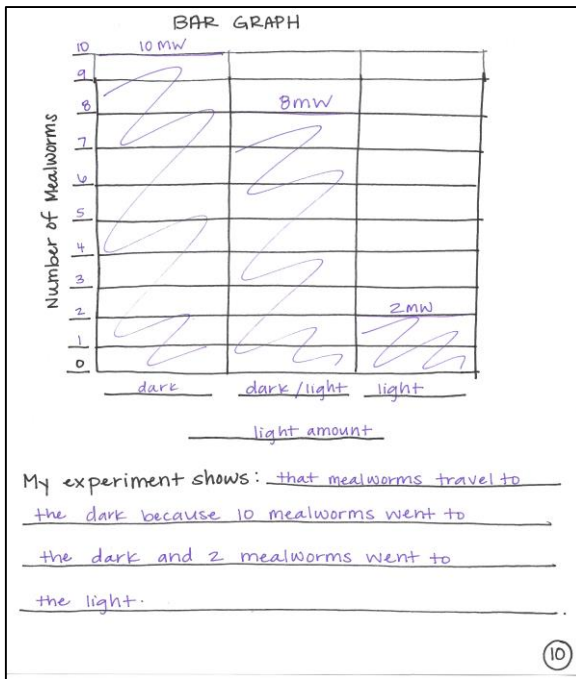 BAR GRAPH
10 10 MW
9
8 8mw
7
6
5
4
3
2 2mw
1
0
Number of Mealworms
dark dark/light light
light amount
My experiment shows: that mealworms travel to
the dark because 10 mealworms went to
the dark and 2 mealworms went to
the light.
10